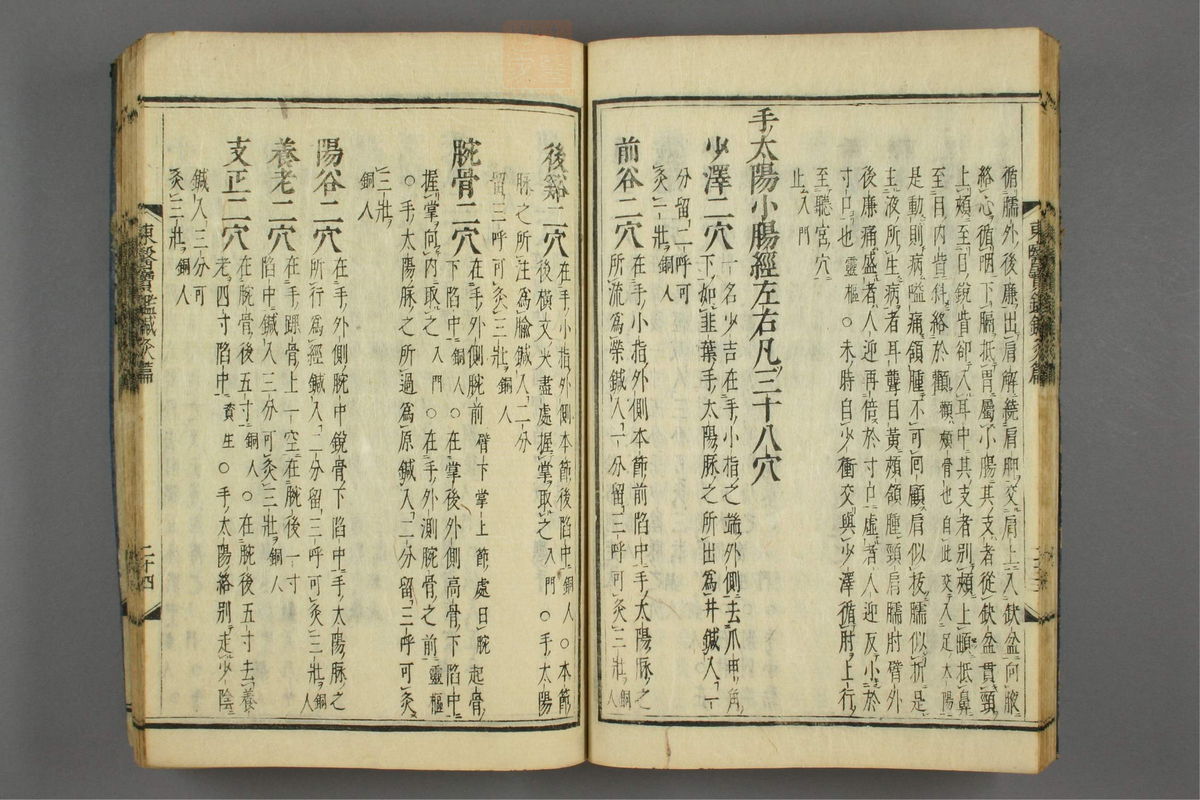 循臑外後廉出肩解繞肩胛交肩上入缺盆向腋
絡心循咽下膈抵胃屬小腸其支者從缺盆貫頸
上頰至目銳眥卻入耳中其支者別頰上䪼抵鼻
至目內眥斜絡於顴顴頰骨也自此交入足太陽
是動則病嗌痛頷腫不可回顧肩似拔臑似折是
主液所生病者耳聾目黃頰頷腫頸肩臑肘臂外
後廉痛盛者人迎再倍於寸口虛者人迎反小於
寸口也靈樞○未時自少衝交與少澤循肘上行
至聽宮穴
止入門
手太陽小腸經左右凡三十八穴
少澤二穴一名少吉在手小指之端外側去爪甲角
下如韭葉手太陽脉之所出爲井鍼入一
分留二呼可
灸一壯銅人
前谷二穴在手小指外側本節前陷中手太陽脉之
所流爲滎鍼入一分留三呼可灸三壯銅人
後谿二穴在手小指外側本節後陷中銅人○本節
後橫文尖盡處握掌取之入門○手太陽
脉之所注爲腧鍼入二分
留三呼可灸三壯銅人
腕骨二穴在手外側腕前臂下掌上節處曰腕起骨
下陷中銅人○在掌後外側高骨下陷中
握掌向內取之入門○在手外測腕骨之前靈樞
○手太陽脉之所過爲原鍼入二分留三呼可灸
三壯
銅人
陽谷二穴在手外側腕中銳骨下陷中手太陽脉之
所行爲經鍼入二分留三呼可灸三壯銅人
養老二穴在手踝骨上一空在腕後一寸
陷中鍼入三分可灸三壯銅人
支正二穴在腕骨後五寸銅人○在腕後五寸去養
老四寸陷中資生○手太陽絡別走少陰
鍼入三分可
灸三壯銅人
東醫寶鑑鍼灸篇
二十四